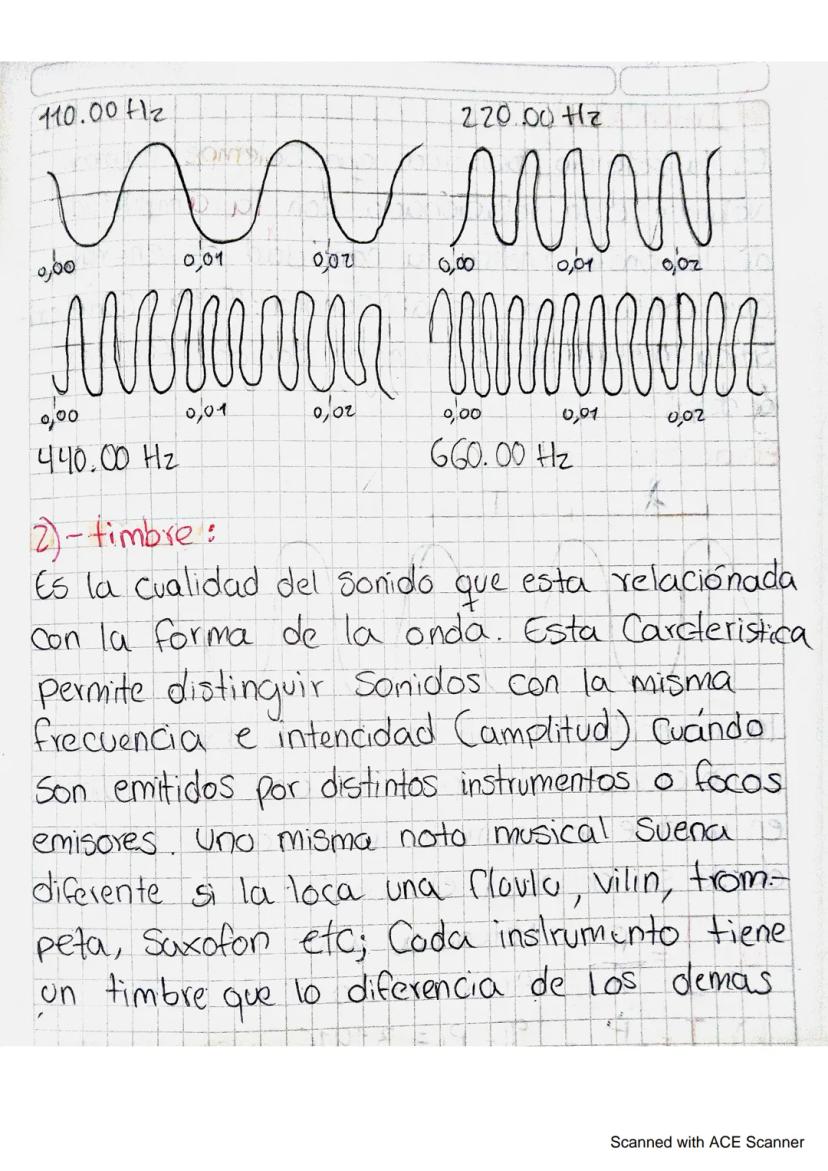 110.00 Hz
220.00 Hz
0,00 0,01 0,02
0,00 0,01 0,02
0,00 0,01 0,02
0,00 0,01 0,02
440.00 Hz
660.00 Hz
2)-timbre:
Es la cualidad del sonido que esta relaciónada
con la forma de la onda. Esta Carcteristica
permite distinguir sonidos con la misma
frecuencia e intencidad (amplitud) Cuándo
son emitidos por distintos instrumentos o focos
emisores. Una misma nota musical suena
diferente si la toca una flauta, vilin, trom-
peta, saxofon etc; Cada instrumento tiene
un timbre que lo diferencia de los demas
Scanned with ACE Scanner